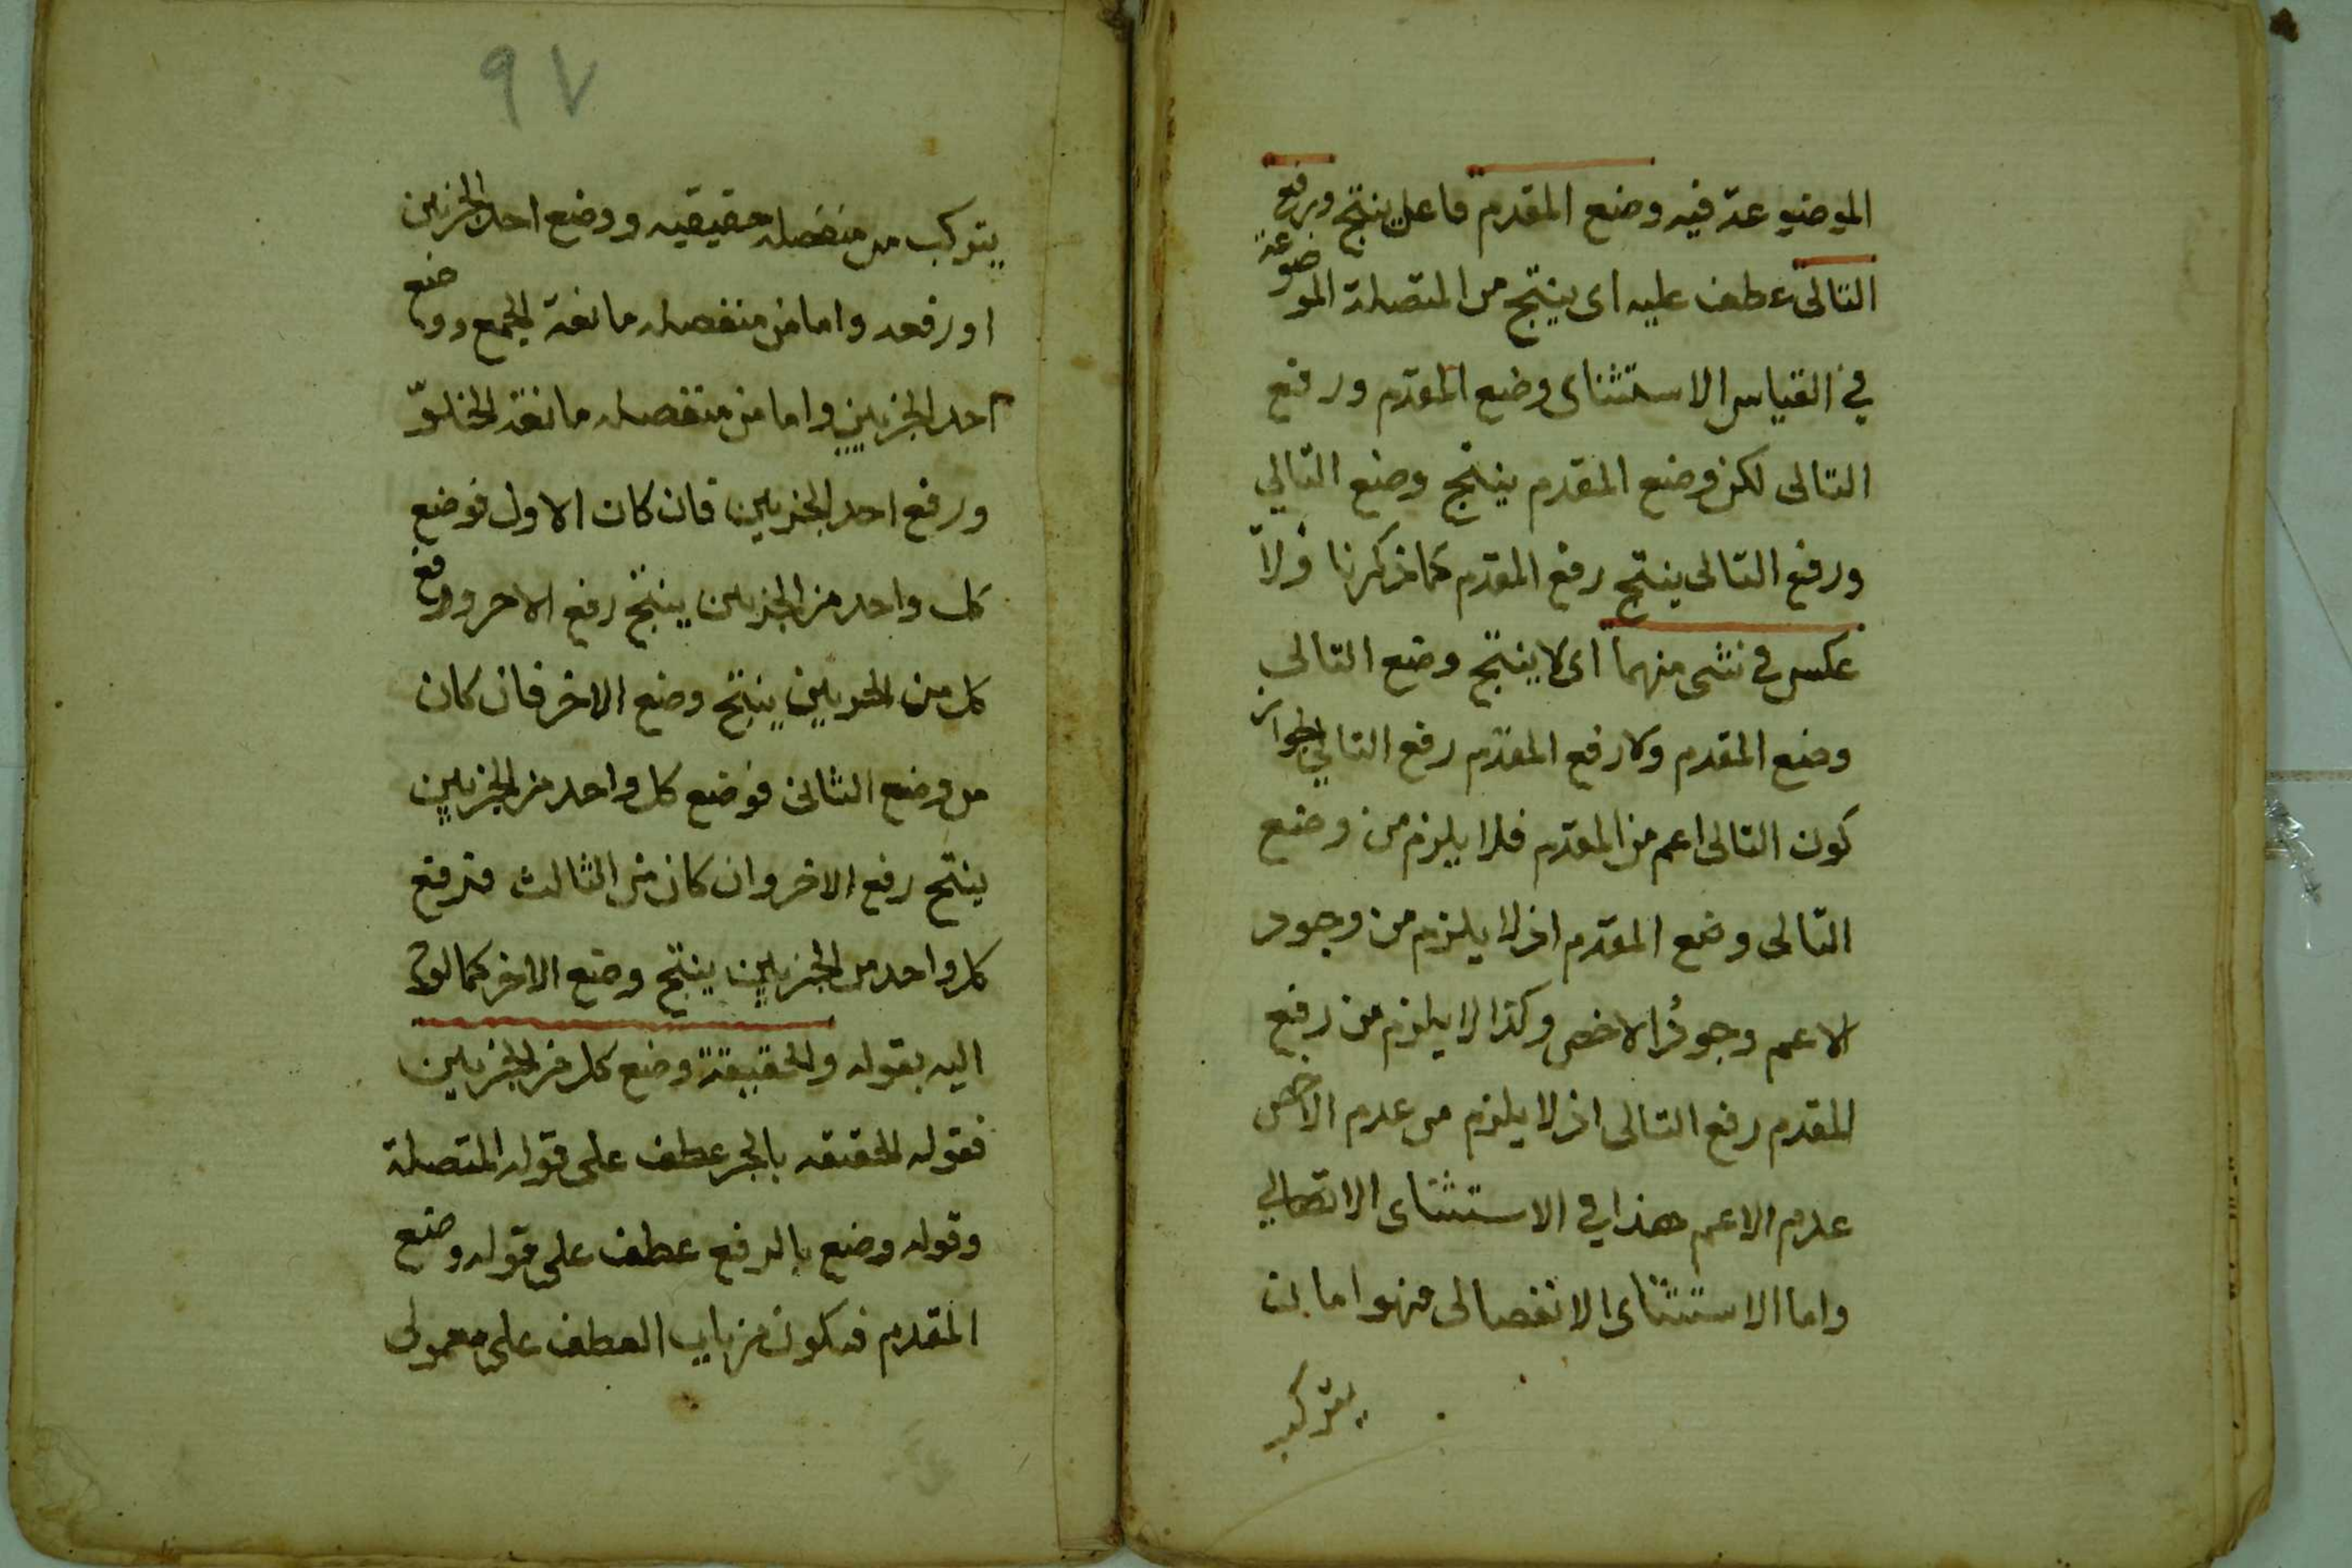 الموضوعة فيه وضع المقدم فاعل ينتج ورفع
التالى عطف عليه اى ينتج من المتصلة الموضوعة
في القياس الاستثناى وضع المقدم ورفع
التالى لكن وضع المقدم ينتج وضع التالي
ورفع التالى ينتج رفع المقدم كما ذكرنا ولا
عكس في شى منهما اى لا ينتج وضع التالى
وضع المقدم ولا رفع المقدم رفع التالي لجواز
كون التالى اعم من المقدم فلا يلزم من وضع
التالى وضع المقدم اذ لا يلزم من وجود
الاعم وجود الاخص وكذا لا يلزم من رفع
المقدم رفع التالى اذ لا يلزم من عدم الاخص
عدم الاعم هذا في الاستثناى الاتصالي
واما الاستثناى الانفصالى فهو اما بان
يتركب
٩٧
يتركب من منفصله حقيقيه ووضع احد الجزيين
او رفعه واما من منفصله مانعة الجمع ووضع
احد الجزيين واما من منفصله مانعة الخلوّ
ورفع احد الجزيين فان كان الاول فوضع
كل واحد من الجزيين ينتج رفع الاخر ورفع
كل من الجزيين ينتج وضع الاخر فان كان
من وضع الثانى فوضع كل واحد من الجزيين
ينتج رفع الاخر وان كان من الثالث فرفع
كل واحد من الجزيين ينتج وضع الاخر كما
اليه بقوله والحقيقة وضع كل من الجزيين
فقوله الحقيقه بالجر عطف على قوله المتصلة
وقوله وضع بالرفع عطف على قوله وضع
المقدم فيكون من باب العطف على معمولى